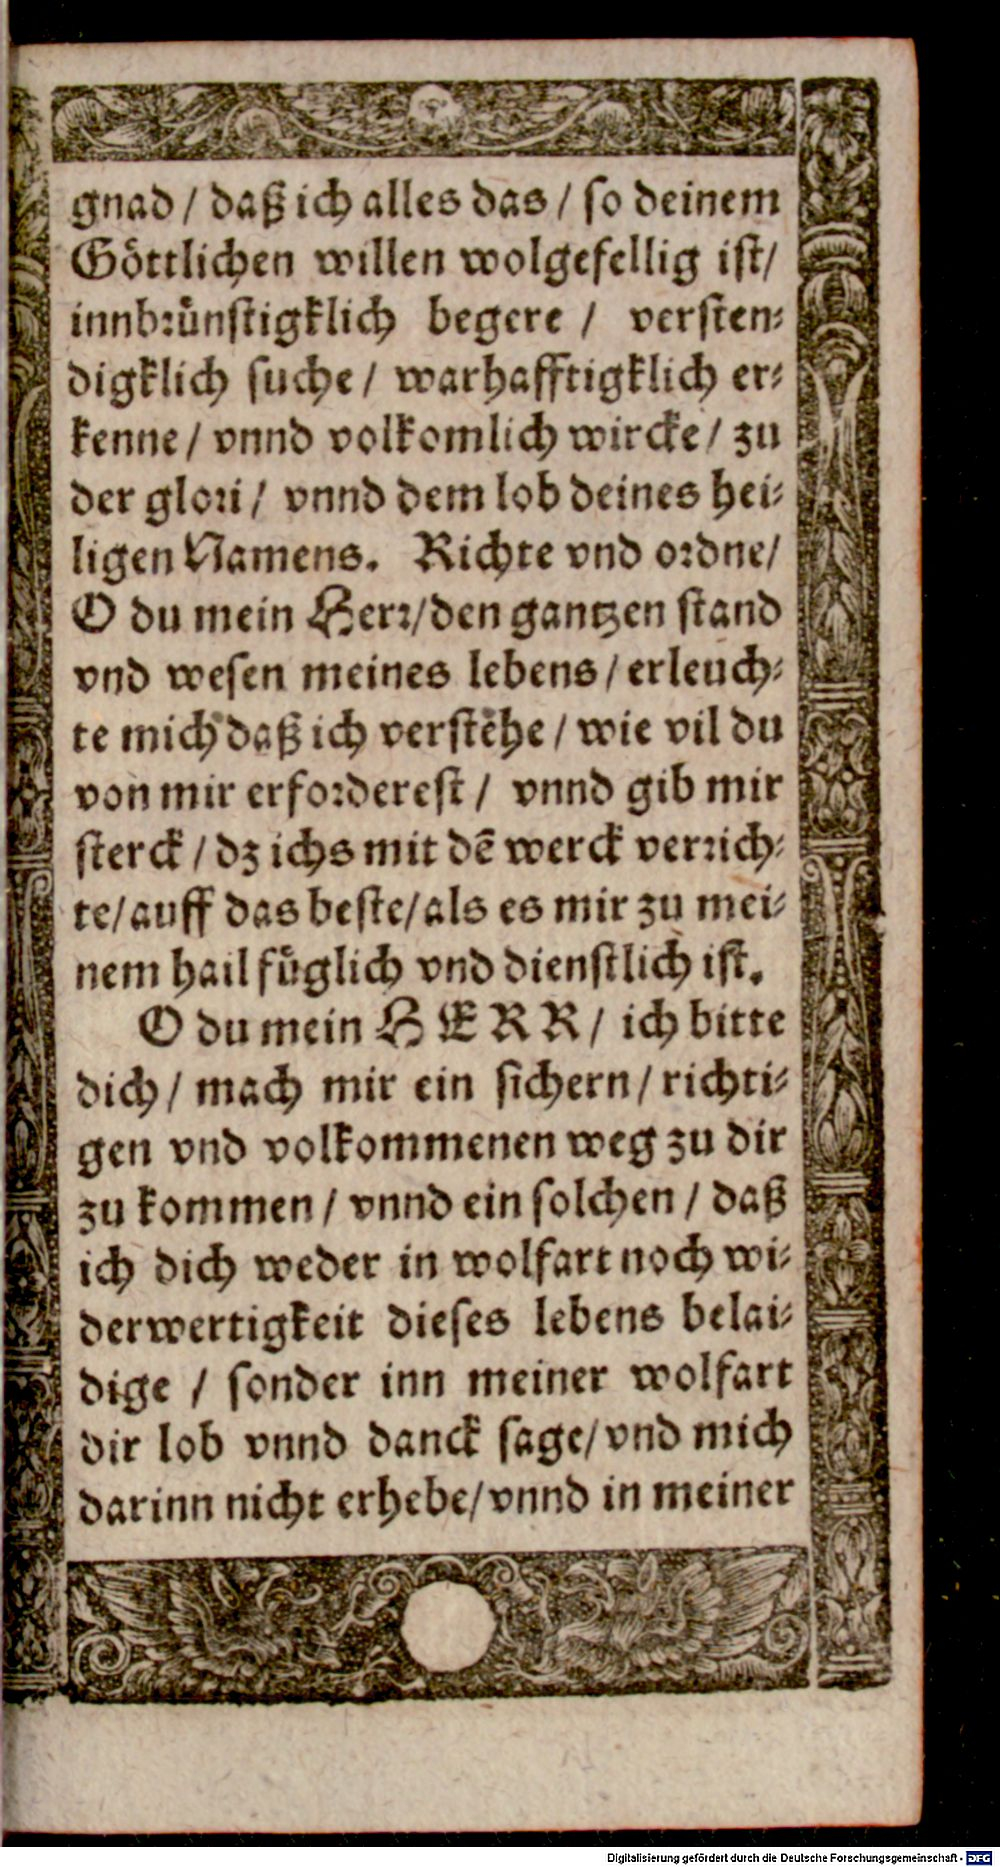 gnad / daß ich alles das / so deinem
Göttlichen willen wolgefellig ist/
innbrünstigklich begere / versten-
digklich suche / warhafftigklich er-
kenne / vnnd volkomlich wircke / zu
der glori / vnnd dem lob deines hei-
ligen Namens. Richte vnd ordne/
O du mein Herr/den gantzen stand
vnd wesen meines lebens / erleuch-
te mich daß ich verstehe / wie vil du
von mir erforderest / vnnd gib mir
sterck / dz ichs mit dē werck verrich-
te/auff das beste/als es mir zu mei-
nem hail füglich vnd dienstlich ist.
O du mein HERR / ich bitte
dich / mach mir ein sichern / richti-
gen vnd volkommenen weg zu dir
zu kommen / vnnd ein solchen / daß
ich dich weder in wolfart noch wi-
derwertigkeit dieses lebens belai-
dige / sonder inn meiner wolfart
dir lob vnnd danck sage/vnd mich
darinn nicht erhebe/vnnd in meiner
Digitalisierung gefördert durch die Deutsche Forschungsgemeinschaft - DFG